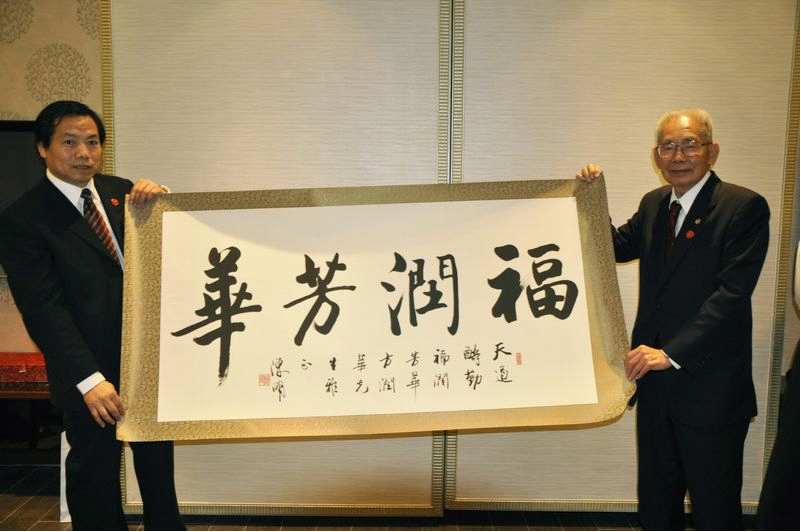 福潤芳華
天道
酬勤
福潤
芳華
方潤
華先
生雅
正
陳